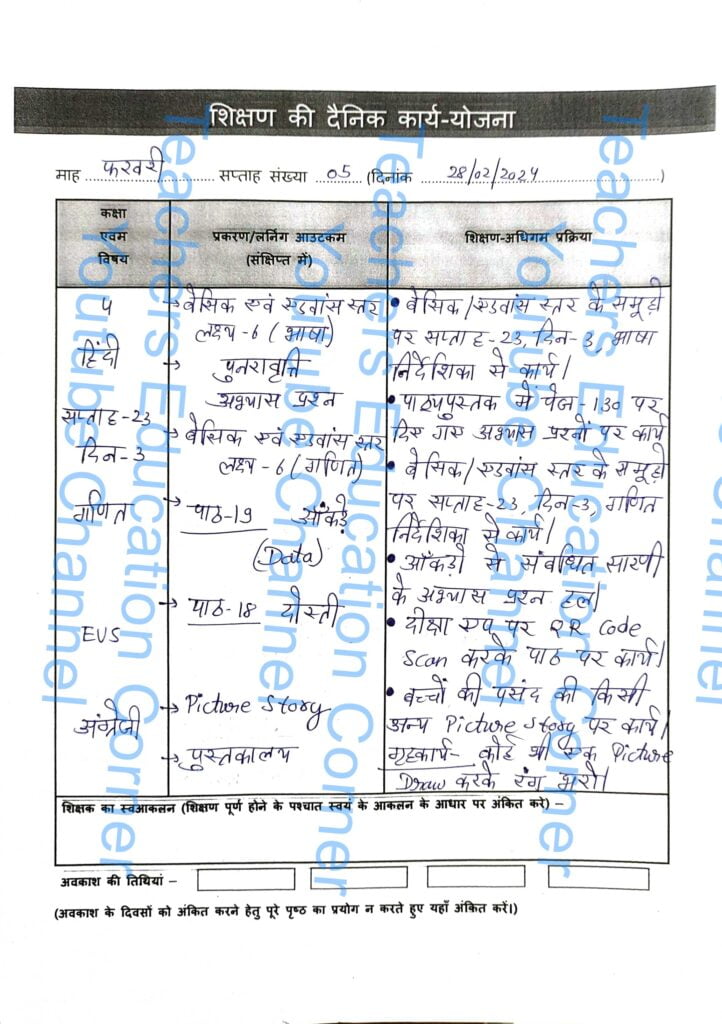 शिक्षण की दैनिक कार्य-योजना
माह फरवरी सप्ताह संख्या 05 (दिनांक 28/02/2024)
कक्षा
एवम
विषय
प्रकरण/लर्निंग आउटकम
(संक्षिप्त में)
शिक्षण-अधिगम प्रक्रिया
5
हिंदी
सप्ताह-23
दिन-3
→ बेसिक एवं एडवांस स्तर
लक्ष्य-6 (भाषा)
→ पुनरावृत्ति
अभ्यास प्रश्न
• बेसिक/एडवांस स्तर के समूहों
पर सप्ताह-23, दिन-3, भाषा
निर्देशिका से कार्य।
• पाठ्यपुस्तक में पेज-130 पर
दिए गए अभ्यास प्रश्नों पर कार्य
गणित
→ बेसिक एवं एडवांस स्तर
लक्ष्य-6 (गणित)
पाठ-19 आँकड़े
(Data)
• बेसिक/एडवांस स्तर के समूहों
पर सप्ताह-23, दिन-3, गणित
निर्देशिका से कार्य।
• आँकड़ों से संबंधित सारणी
के अभ्यास प्रश्न हल।
EVS
→ पाठ-18 दोस्ती
• दीक्षा एप पर QR Code
Scan करके पाठ पर कार्य।
अंग्रेजी
→ Picture Story
→ पुस्तकालय
• बच्चों की पसंद की किसी
अन्य Picture Story पर कार्य।
गृहकार्य- कोई भी एक Picture
Draw करके रंग भरो।
शिक्षक का स्वआकलन (शिक्षण पूर्ण होने के पश्चात स्वयं के आकलन के आधार पर अंकित करे) –
अवकाश की तिथियां –
(अवकाश के दिवसों को अंकित करने हेतु पूरे पृष्ठ का प्रयोग न करते हुए यहाँ अंकित करें।)
Teachers Education Corner
Youtube Channel
Teachers Education Corner
Youtube Channel
Teachers Education Corner
Youtube Channel